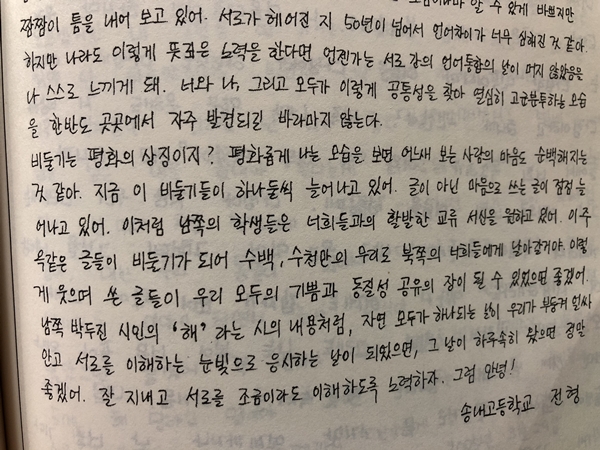 알 수 있게 바쁘지만
짬짬이 틈을 내어 보고 있어. 서로가 헤어진 지 50년이 넘어서 언어차이가 너무 심해진 것 같아.
하지만 나라도 이렇게 뜻좌은 노력을 한다면 언젠가는 서로 간의 언어통합의 날이 머지 않았음을
나 스스로 느끼게 돼. 너와 나, 그리고 모두가 이렇게 공통성을 찾아 열심히 고군분투하는 모습
을 한반도 곳곳에서 자주 발견되길 바라마지 않는다.
비둘기는 평화의 상징이지? 평화롭게 나는 모습을 보면 어느새 보는 사람의 마음도 순백해지는
것 같아. 지금 이 비둘기들이 하나둘씩 늘어나고 있어. 글이 아닌 마음으로 쓰는 글이 점점 늘
어나고 있어. 이처럼 남쪽의 학생들은 너희들과의 활발한 교류 서신을 원하고 있어. 이 주
옥같은 글들이 비둘기가 되어 수백, 수천만의 무리로 북쪽의 너희들에게 날아갈거야. 이렇
게 웃으며 쓴 글들이 우리 모두의 기쁨과 동질성 공유의 장이 될 수 있었으면 좋겠어.
남쪽 박두진 시인의 '해' 라는 시의 내용처럼, 자연 모두가 하나되는 날이 우리가 부둥켜 얼싸
안고 서로를 이해하는 눈빛으로 응시하는 날이 되었으면, 그 날이 하루속히 왔으면 정말
좋겠어. 잘 지내고 서로를 조금이라도 이해하도록 노력하자. 그럼 안녕!
송내고등학교 전형